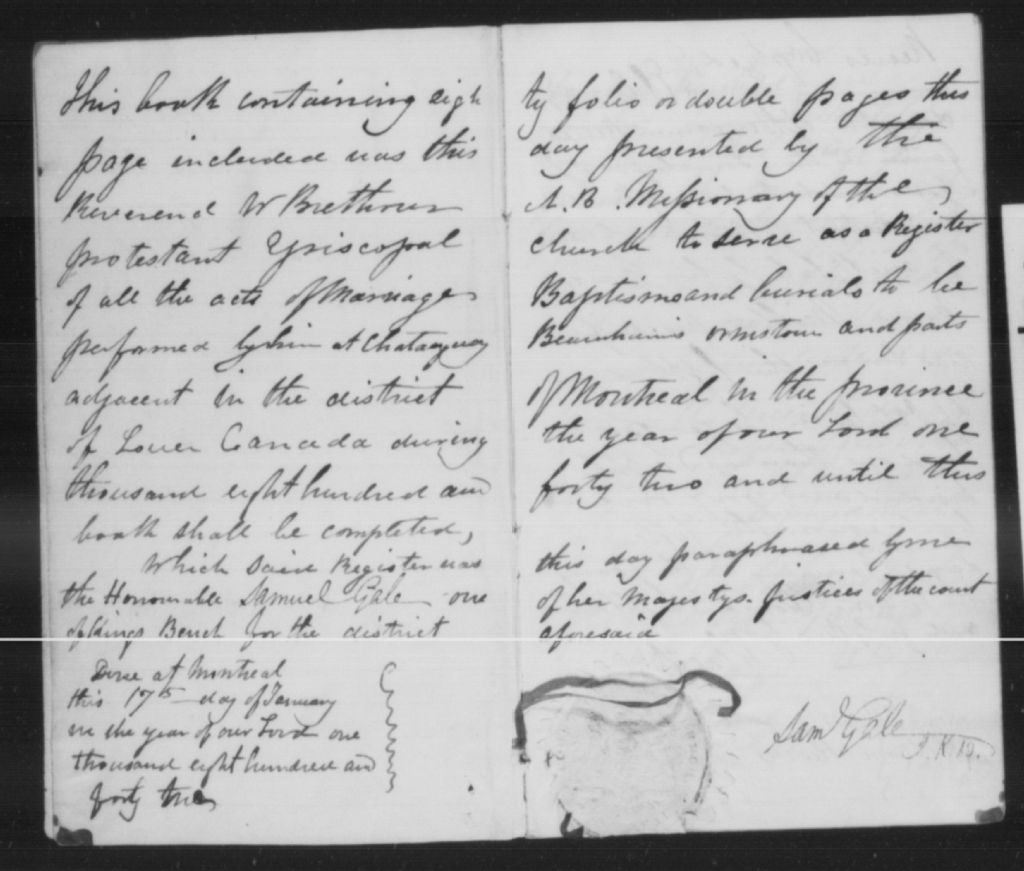 This book containing eigh ty folio or double pages this
page included was this day presented by the
Reverend W Brethour A.B. Missionary of the
protestant Episcopal church to serve as a Register
of all the acts of Marriage Baptisms and burials to be
performed by him at Chatauguay Beauharnois ormstown and parts
adjacent in the district of Montreal in the province
of Lower Canada during the year of our Lord one
thousand eight hundred and forty two and until this
book shall be completed,
Which said Register was this day paraphrased by me
the Honourable Samuel Gale one of her Majestys Justices of the court
of Kings Bench for the district aforesaid
Done at Montreal
this 17th day of January
in the year of our Lord one
thousand eight hundred and
forty two
Saml Gale
J.K.B.